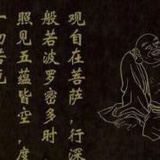 观自在菩萨，行深
般若波罗密多时
照见五蕴皆空，度
一切苦厄